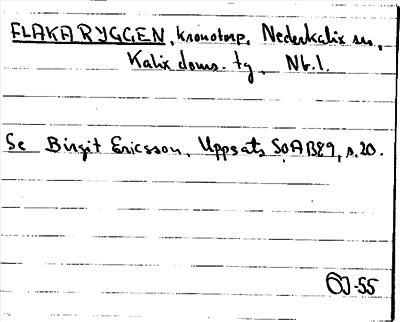 FLAKARYGGEN, kronotorp, Nederkalix sn,
Kalix doms. tg, Nb. l.
Se Birgit Ericsson, Uppsats SOAB89, s.20.
-55